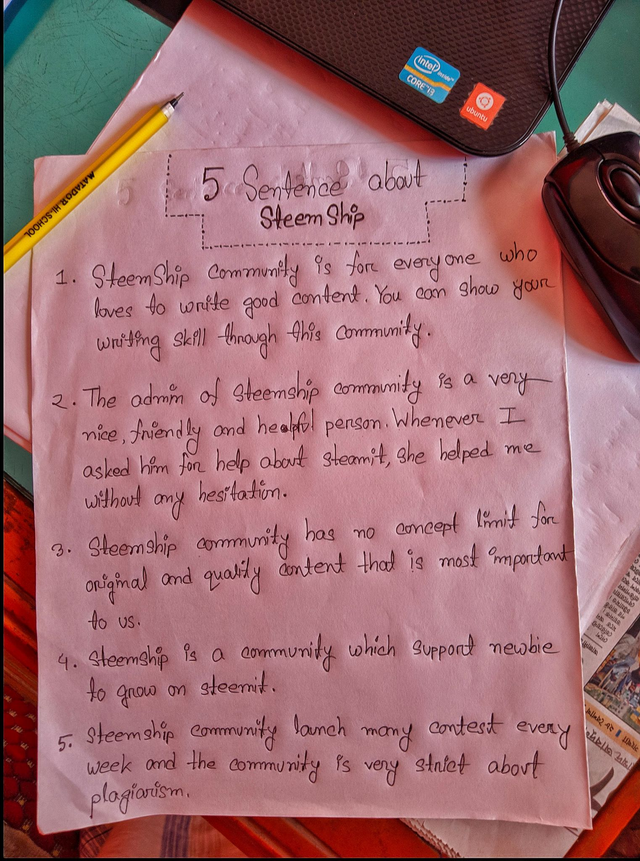 intel inside
CORE i3
ubuntu
MATADOR HI-SCHOOL
5 Sentence about
SteemShip
1. SteemShip community is for everyone who
loves to write good content. You can show your
writing skill through this community.
2. The admin of steemship community is a very
nice, friendly and healpful person. Whenever I
asked him for help about steamit, she helped me
without any hesitation.
3. Steemship community has no concept limit for
original and quality content that is most important
to us.
4. Steemship is a community which support newbie
to grow on steemit.
5. Steemship community launch many contest every
week and the community is very strict about
plagiarism.